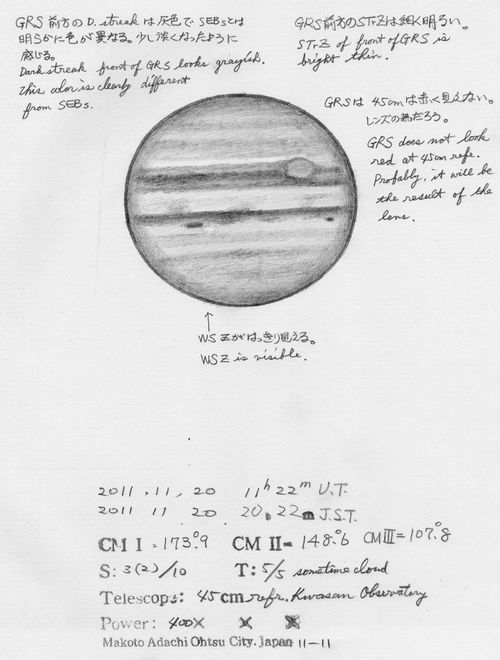 GRS前方のD. streakは灰色でSEBsとは
明らかに色が異なる。少し濃くなったように
感じる。
Dark streak front of GRS looks grayish.
this color is clearly different
from SEBs.
GRS前方のSTrZは細く明るい。
STrZ of front of GRS is
bright thin.
GRSは45cmは赤く見えない。
レンズの為だろう。
GRS does not look
red at 45cm refr.
Probably, it will be
the result of the
lens.
↑
WSZがはっきり見える。
WSZ is visible.
2011.11.20 11h22m U.T.
2011 11 20 20.22m J.S.T.
CM I = 173.°9 CM II= 148.°6 CM III= 107.°8
S: 3(2)/10 T: 5/5 sometime cloud
Telescope: 45cm refr. Kwasan Observatory
Power: 400× × ×
Makoto Adachi Ohtsu City. Japan 11-11